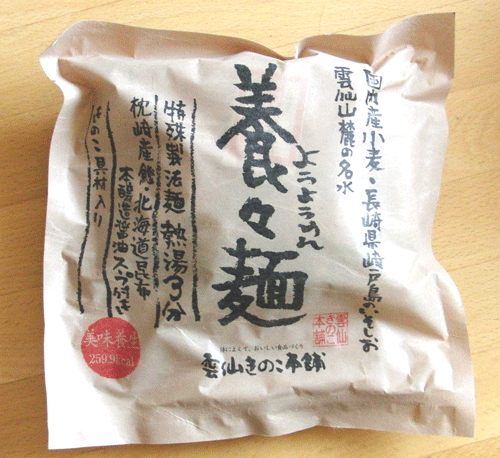 国内産小麦・長崎県崎戸島のいそしお
雲仙山麓の名水
養々麺
ようようめん
特殊製法麺 熱湯3分
枕崎産鰹・北海道昆布
本醸造醤油スープ付き
きのこ具材入り
美味養生
259.9kcal
雲仙
きのこ
本舗
体によくて、おいしい食品づくり
雲仙きのこ本舗